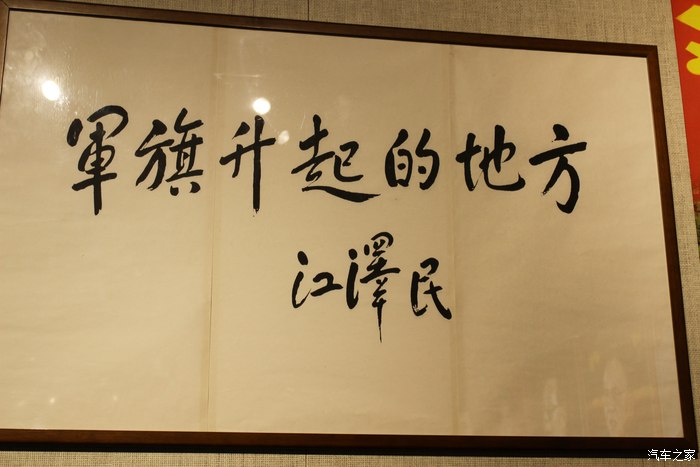 軍旗升起的地方
江澤民
汽车之家